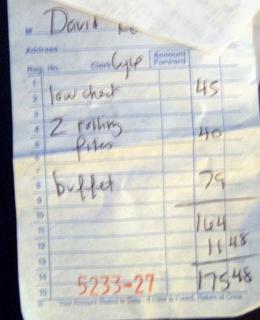 M David
Address
Reg. No. Clerk Lyle Account Forward
1
2 low chest 45
3
4 2 rolling 40
5
6
7
8 buffet 79
9
10
11 164
12 11 48
13
14 175 48
15 5233-27
Your Account Stated to Date - If Error is Found, Return at Once